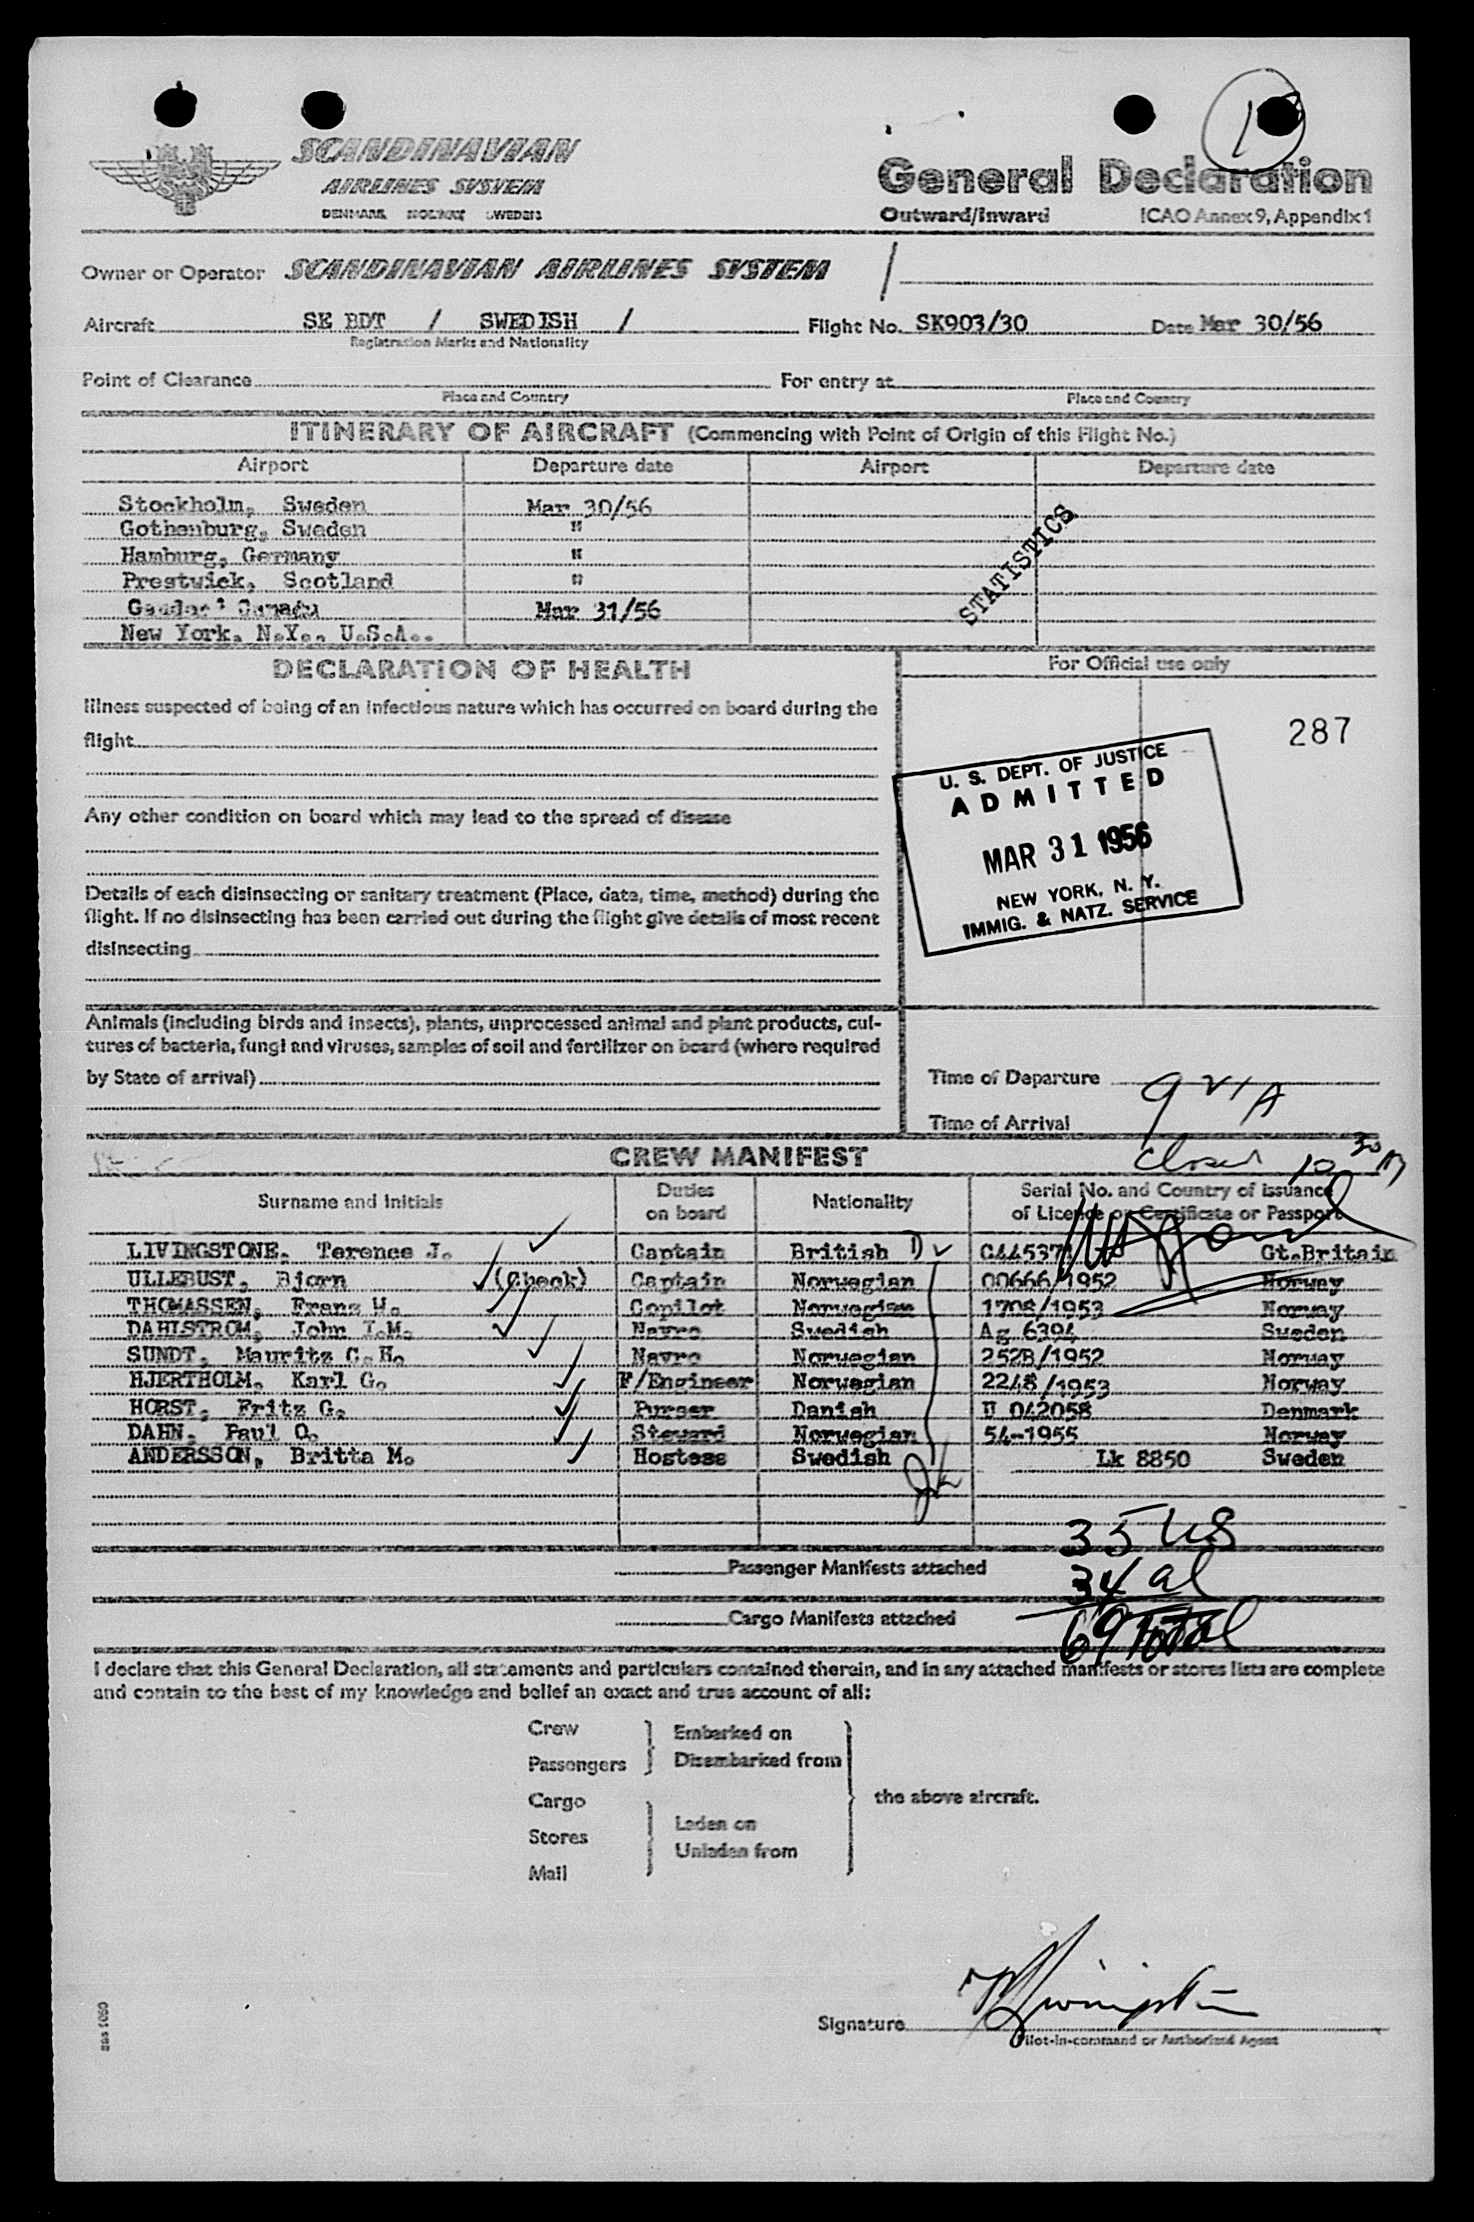 1
SCANDINAVIAN
AIRLINES SYSTEM
DENMARK NORWAY SWEDEN
General Declaration
Outward/Inward ICAO Annex 9, Appendix 1
Owner or Operator SCANDINAVIAN AIRLINES SYSTEM /
Aircraft SE BDT / SWEDISH / Flight No. SK903/30 Date Mar 30/56
Registration Marks and Nationality
Point of Clearance For entry at
Place and Country Place and Country
ITINERARY OF AIRCRAFT (Commencing with Point of Origin of this Flight No.)
Airport Departure date Airport Departure date
Stockholm, Sweden Mar 30/56
Gothenburg, Sweden "
Hamburg, Germany "
Prestwick, Scotland "
Gander, Canada Mar 31/56
New York, N.Y., U.S.A..
STATISTICS
DECLARATION OF HEALTH
For Official use only
Illness suspected of being of an infectious nature which has occurred on board during the
flight
287
U. S. DEPT. OF JUSTICE
ADMITTED
MAR 31 1956
NEW YORK, N. Y.
IMMIG. & NATZ. SERVICE
Any other condition on board which may lead to the spread of disease
Details of each disinsecting or sanitary treatment (Place, date, time, method) during the
flight. If no disinsecting has been carried out during the flight give details of most recent
disinsecting
Animals (including birds and insects), plants, unprocessed animal and plant products, cul-
tures of bacteria, fungi and viruses, samples of soil and fertilizer on board (where required
by State of arrival)
Time of Departure
Time of Arrival 9 21 A
CREW MANIFEST
Closed 10 30
Surname and Initials Duties on board Nationality Serial No. and Country of issuance of Licence or Certificate or Passport
LIVINGSTONE. Terence J. Captain British Gt.Britain
ULLEBUST, Bjorn (Check) Captain Norwegian 00666/1952 Norway
THOMASSEN, Franz W. Copilot Norwegian 1708/1953 Norway
DAHLSTROM, John I.M. Navro Swedish Ag 6394 Sweden
SUNDT, Mauritz C.H. Navro Norwegian 2528/1952 Norway
HJERTHOLM. Karl G. F/Engineer Norwegian 2248/1953 Norway
HORST, Fritz G. Purser Danish U 042058 Denmark
DAHN. Paul O. Steward Norwegian 54-1955 Norway
ANDERSSON, Britta M. Hostess Swedish Lk 8850 Sweden
35 US
Passenger Manifests attached
34 al
Cargo Manifests attached
69 Total
I declare that this General Declaration, all statements and particulars contained therein, and in any attached manifests or stores lists are complete
and contain to the best of my knowledge and belief an exact and true account of all:
Crew Embarked on
Passengers Disembarked from
Cargo the above aircraft.
Stores Laden on
Unladen from
Mail
Signature
Pilot-in-command or Authorized Agent
sas 1050